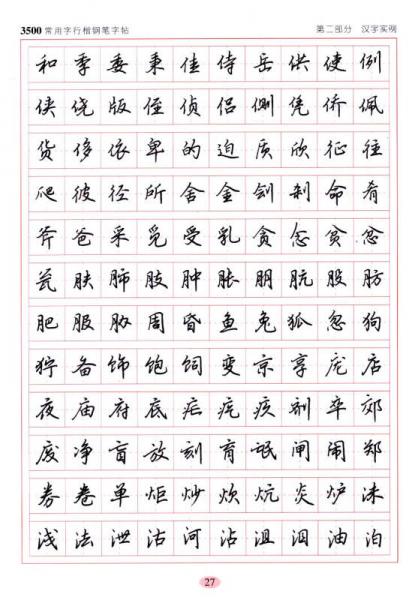 3500常用字行楷钢笔字帖 第二部分 汉字实例
和季委秉佳侍岳供使例
侠侥版侄侦侣侧凭侨佩
货侈依卑的迫质欣征往
爬彼径所舍金刽刹命肴
斧爸采觅受乳贪念贫忿
瓮肤肺肢肿胀朋肮股肪
肥服胁周昏鱼兔狐忽狗
狞备饰饱饲变京享庞店
夜庙府底疟疙疚剂卒郊
废净盲放刻育氓闸闹郑
券卷单炬炒炊炕炎炉沫
浅法泄沽河沾沮泪油泊
27